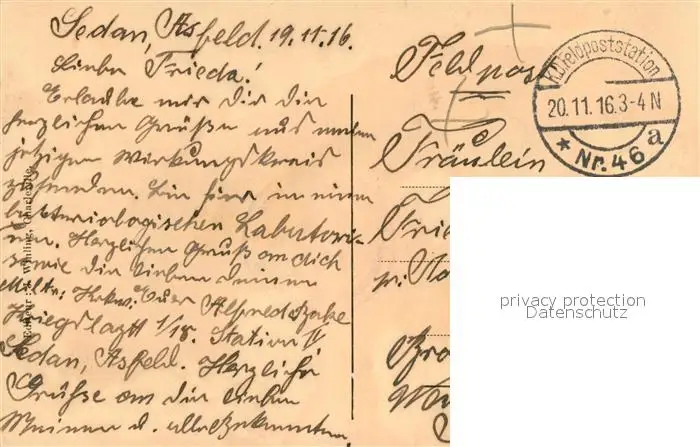 Sedan, Asfeld. 19.11.16.
Liebe Frieda!
Erlaube mir Dir die
herzlichen Grüße aus meinem
jetzigen Wirkungskreis
zu senden. Bin hier in einem
bakteriologischen Laboratori-
um. Herzlichen Gruß an dich
sowie die lieben deinen
Euer Alfred
Kriegslaztt 1/18. Station II
Sedan, Asfeld. Herzliche
Grüsse an die lieben
Meinen u. alle Bekannten.
Feldpost
K.D. Feldpoststation
20.11.16.3-4N
* Nr. 46 a
Fräulein
Frie
privacy protection
Datenschutz